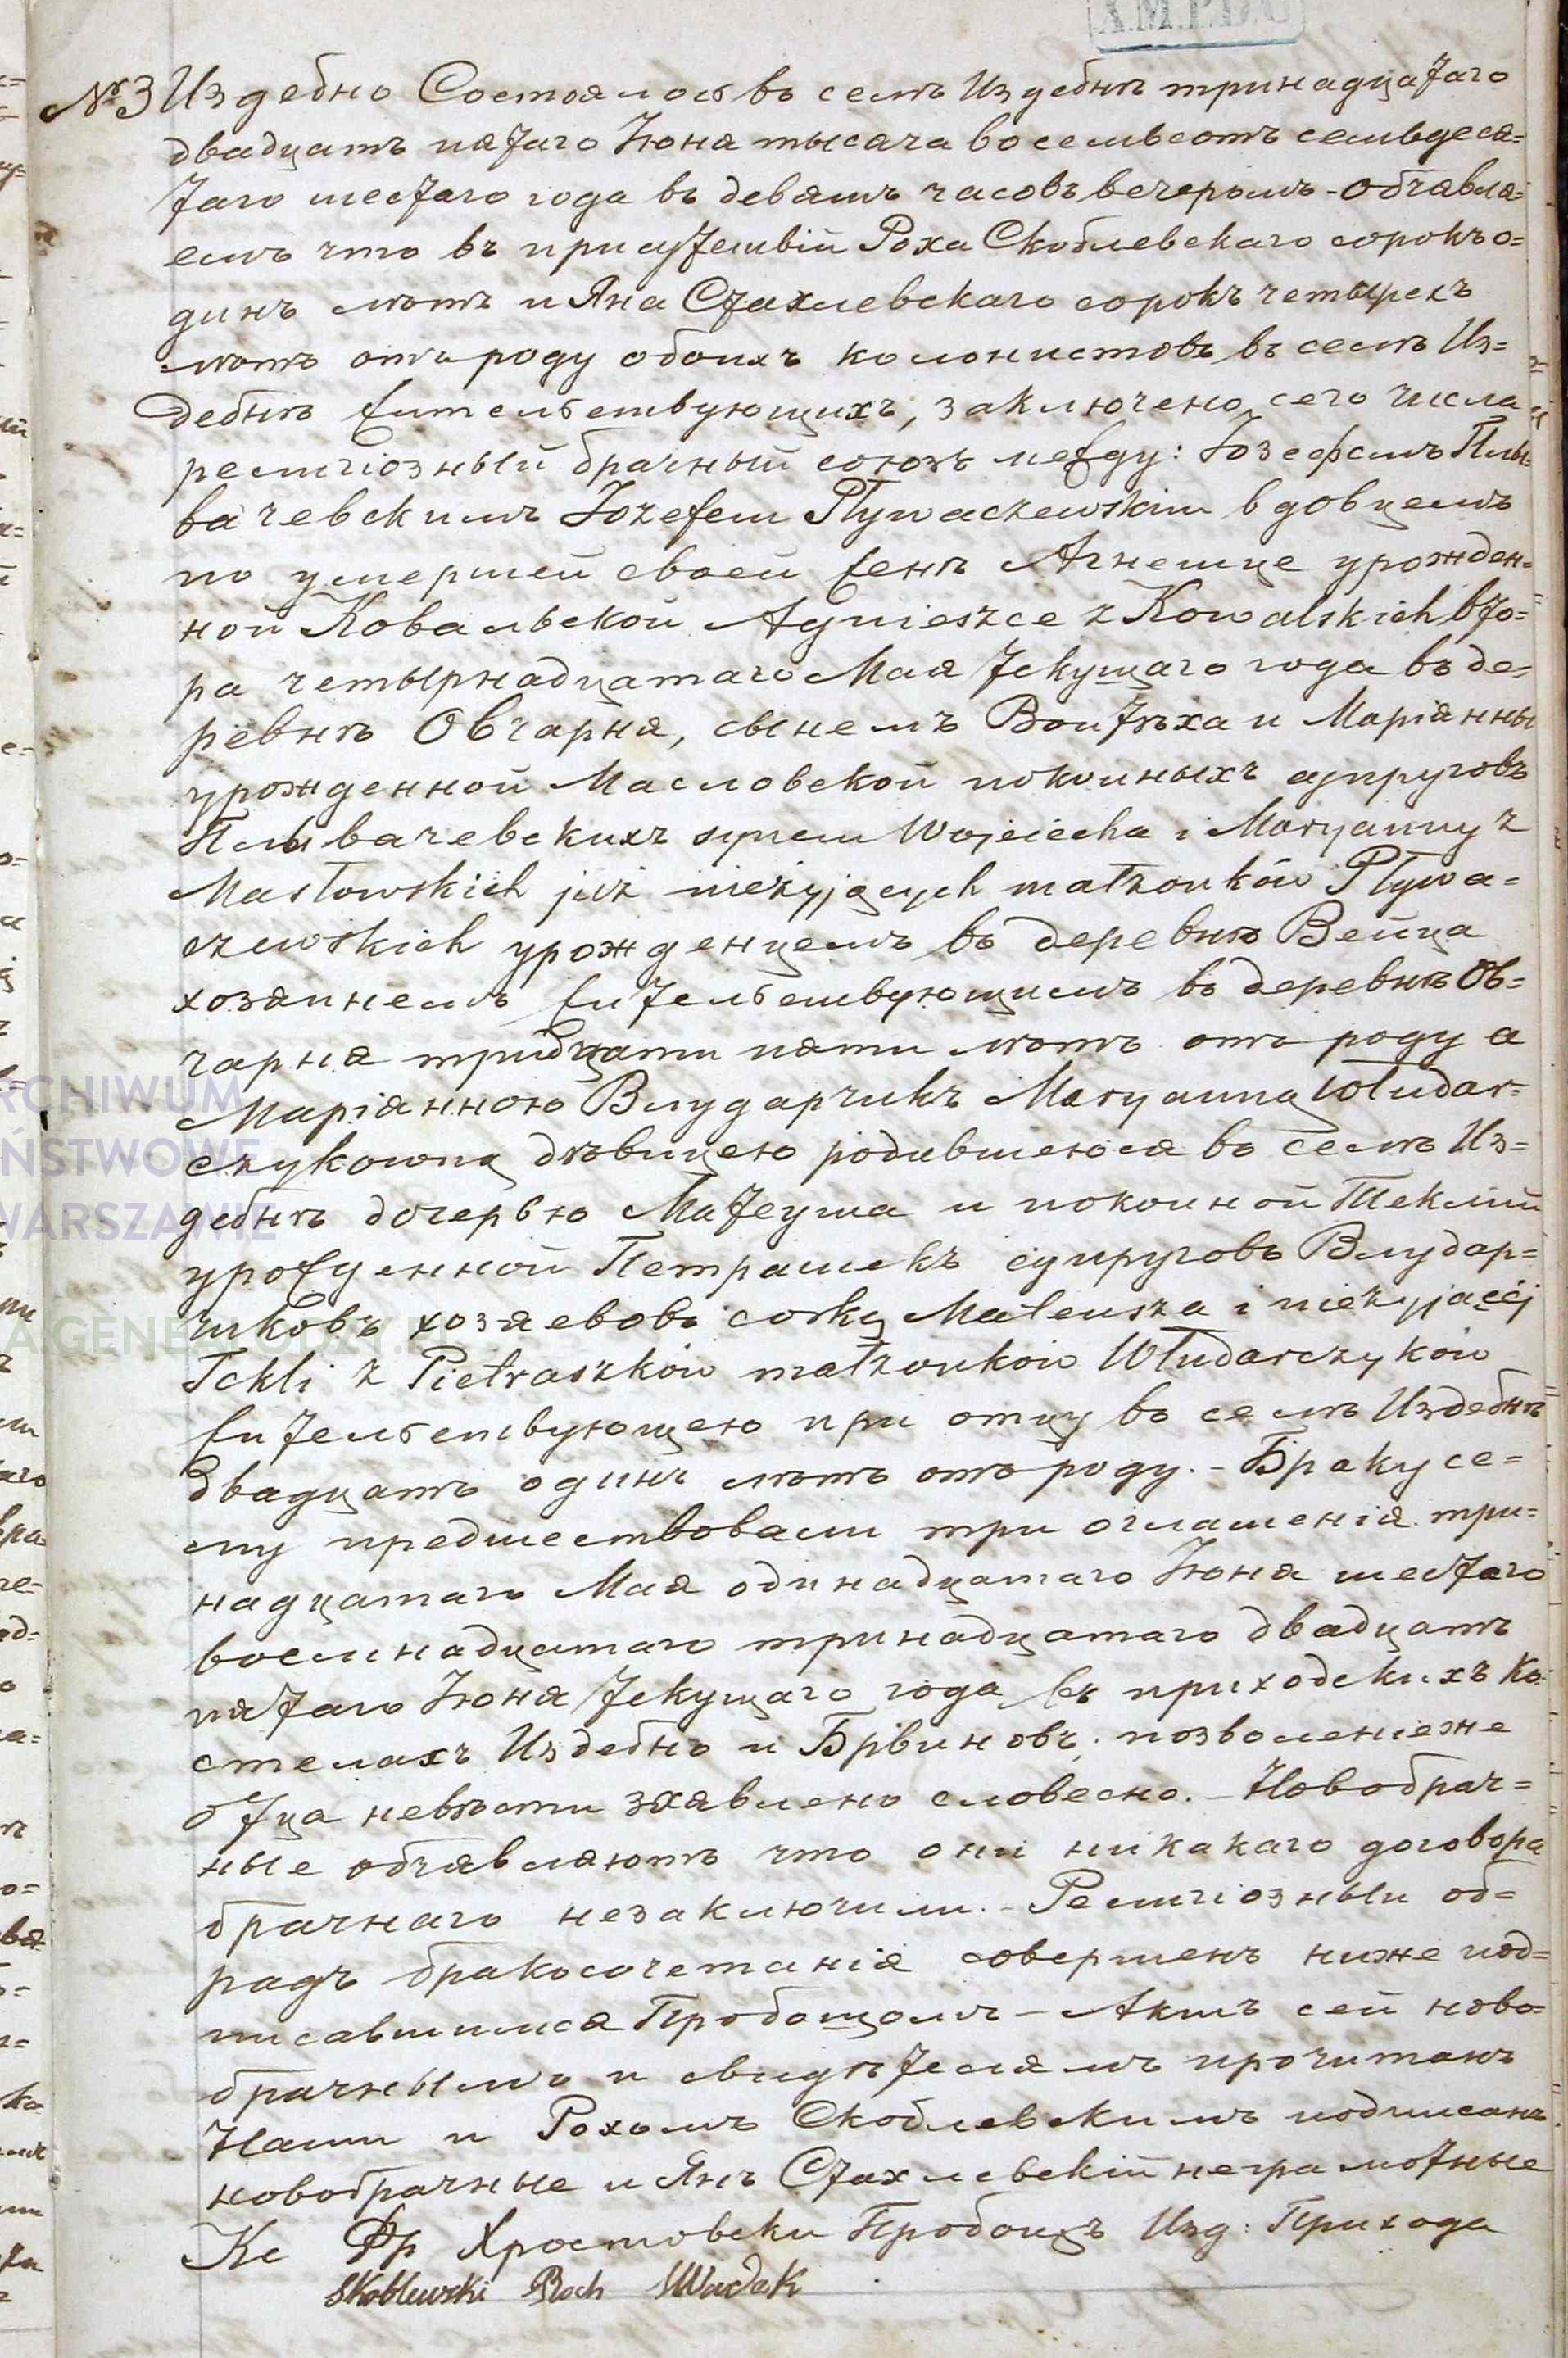 Х.М.Р.Д.О
№ 3 Издебно Состоялось въ селѣ Издебнѣ тринадцатаго
двадцать пятаго Іюня тысяча восемьсотъ семьдеся=
таго шестаго года въ девять часовъ вечеромъ - Объявля=
емъ что въ присутствіи Роха Скоблевскаго сорокъ о=
динъ лѣтъ и Яна Стахлевскаго сорокъ четырехъ
лѣтъ отъ роду обоихъ колонистовъ въ селѣ Из=
дебнѣ жительствующихъ, заключено сего числа
религіозный брачный союзъ между: Іозефомъ Плы=
вачевскимъ Jozefem Pływaczewskim вдовцемъ
по умершей своей женѣ Агнешце урожден=
ной Ковальской Agnieszce z Kowalskich вто=
ра четырнадцатаго Мая текущаго года въ де=
ревнѣ Овчарня, сынемъ Войтѣха и Маріанны
урожденной Масловской покойныхъ супруговъ
Плывачевскихъ synem Wojciecha i Maryanny z
Masłowskich już nieżyjących małżonków Pływa=
czewskich урожденцемъ въ деревнѣ Вейца
хозяинемъ жительствующимъ въ деревнѣ Ов=
чарня тридцати пяти лѣтъ отъ роду а
Маріанною Влударчикъ Maryanną Włudar=
czykowną дѣвицею родившеюся въ селѣ Из=
дебнѣ дочерью Матеуша и покойной Теклии
урожденной Петрашекъ супруговъ Влудар=
чиковъ хозяевовъ corką Mateusza i nieżyjącéj
Tekli z Pietraszków małżonków Włudarczyków
жительствующею при отцу въ селѣ Издебнѣ
двадцать одинъ лѣтъ отъ роду. - Браку се=
му предшествовали три оглашенія три=
надцатаго Мая одинадцатаго Іюня шестаго
восемнадцатаго тринадцатаго двадцать
пятаго Іюня текущаго года въ приходскихъ ко=
стелахъ Издебно и Брвиновъ; позволеніеже
отца невѣсти зъявлено словесно. - Новобрач=
ные объявляютъ что они никакаго договора
брачнаго незаключили. - Религіозный об=
рядъ бракосочетанія совершенъ ниже под=
писавшимся Пробощомъ - Актъ сей ново=
брачнымъ и свидѣтелямъ прочитанъ
Нами и Рохомъ Скоблевскимъ подписанъ.
новобрачные и Янъ Стахлевскій неграмотные
Кс Фр Хростовски Пробощъ Изд: Прихода
Skoblewski Roch
ARCHIWUM
PAŃSTWOWE
WARSZAWIE